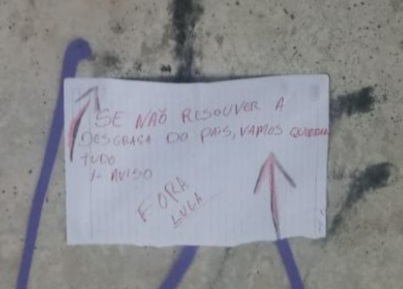 SE NÃO RESOUVER A
DESGRASA DO PAIS, VAMOS QUEBRAR
TUDO
1- AVISO
FORA
LULA